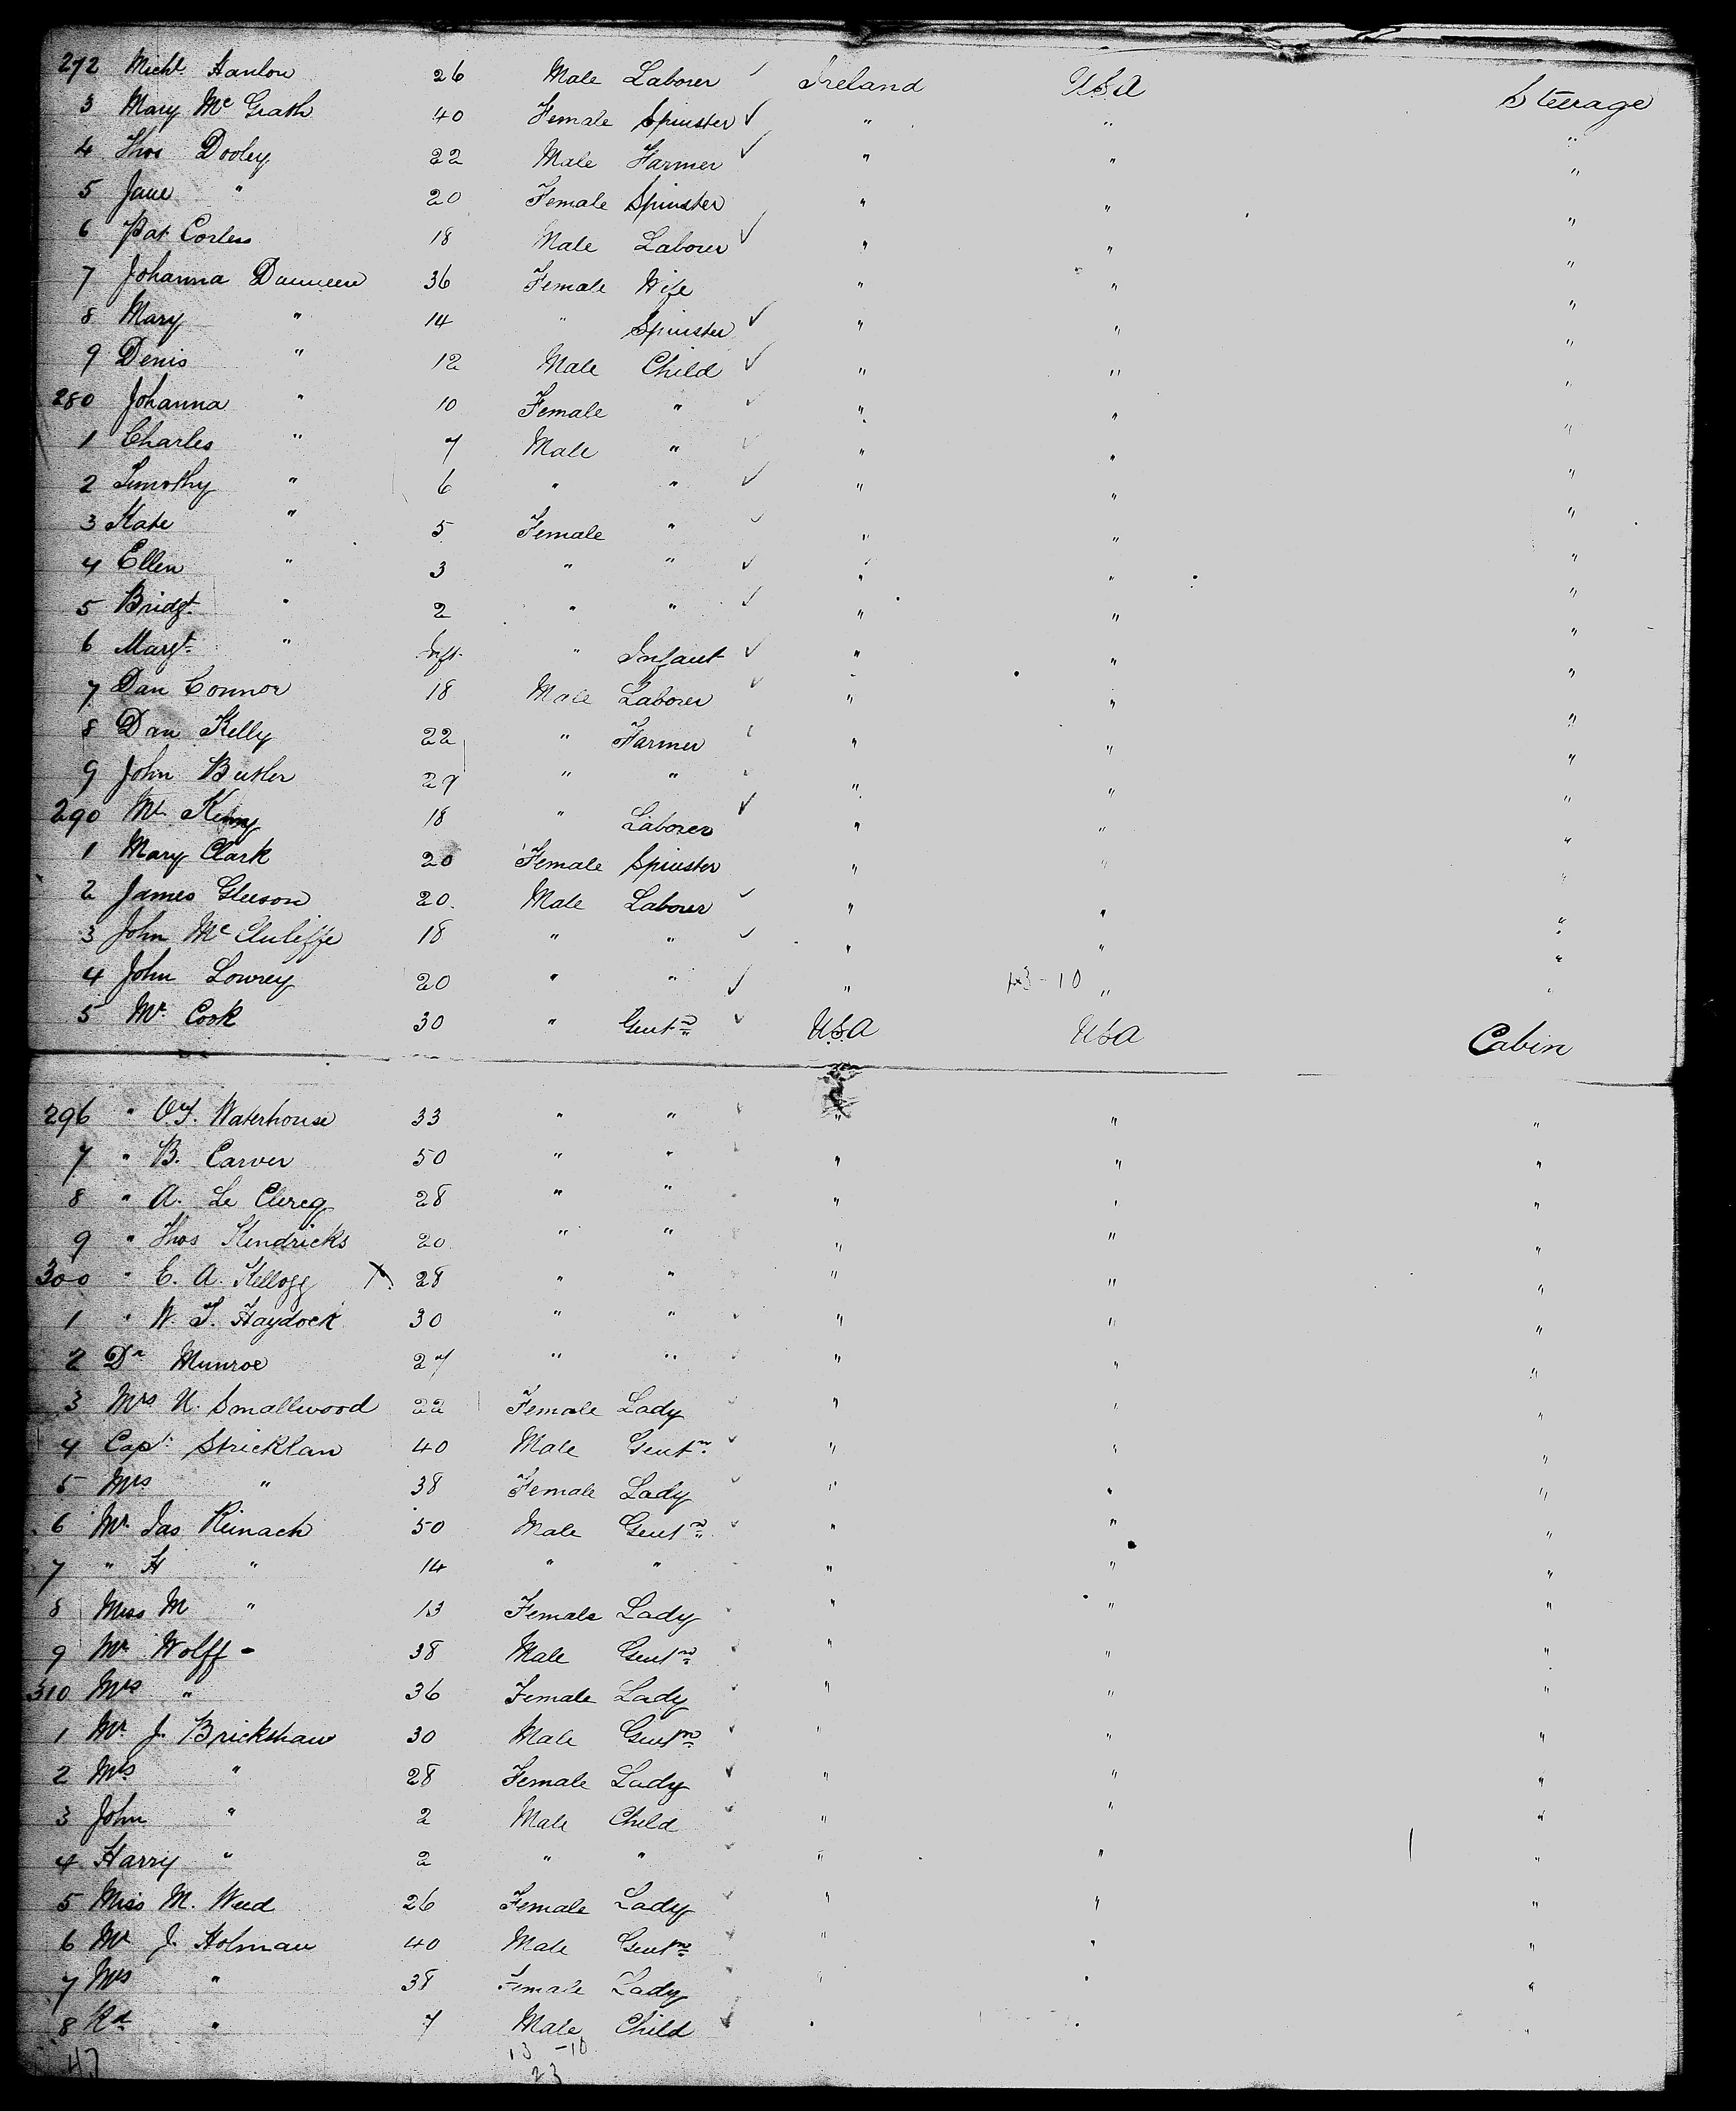 272 Michl. Hanlon 26 Male Laborer ✓ Ireland USA Steerage
3 Mary Mc Grath 40 Female Spinster ✓ " " "
4 Thos Dooley 22 Male Farmer ✓ " " "
5 Jane " 20 Female Spinster " " "
6 Pat Corless 18 Male Laborer ✓ " " "
7 Johanna 36 Female Wife " " "
8 Mary " 14 " Spinster ✓ " " "
9 Denis " 12 Male Child ✓ " " "
280 Johanna " 10 Female " ✓ " " "
1 Charles " 7 Male " ✓ " " "
2 Timothy " 6 " " ✓ " " "
3 Kate " 5 Female " ✓ " " "
4 Ellen " 3 " " ✓ " " "
5 Bridgt. " 2 " " ✓ " " "
6 Margt. " Inft. " Infant ✓ " " "
7 Dan Connor 18 Male Laborer ✓ " " "
8 Dan Kelly 22 " Farmer " " "
9 John Butler 27 " " " " "
290 Ml. Kenny 18 " Laborer ✓ " " "
1 Mary Clark 20 Female Spinster " " "
2 James Gleeson 20. Male Laborer ✓ " " "
3 John Mc 18 " " ✓ " " "
4 John Lowrey 20 " " ✓ " - 10 " "
5 Mr. Cook 30 " Gentn ✓ USA USA Cabin
296 " Waterhouse 33 " " " " "
7 " B. Carver 50 " " " " "
8 " A. Le Clercq 28 " " " " "
9 " Thos Kendricks 20 " " " " "
300 " E. A. Kellogg X 28 " " " " "
1 " W. T. Haydock 30 " " " " "
2 Dr Munroe 27 " " " " "
3 Mrs U. Smallwood 22 Female Lady " " "
4 Capt. Stricklan 40 Male Gentn ✓ " " "
5 Mrs " 38 Female Lady ✓ " " "
6 Mr Jas Reinach 50 Male Gentn ✓ " " "
7 " H " 14 " " " " "
8 Miss M " 13 Female Lady " " "
9 Mr Wolff - 38 Male Gentn " " "
310 Mrs " 36 Female Lady " " "
1 Mr. J. Brickshaw 30 Male Gentn ✓ " " "
2 Mrs " 28 Female Lady ✓ " " "
3 John " 2 Male Child ✓ " " "
4 Harry " 2 " " ✓ " " "
5 Miss M. Weed 26 Female Lady ✓ " " "
6 Mr J. Holman 40 Male Gentn " " "
7 Mrs " 38 Female Lady " " "
8 Rd. " 7 Male Child ✓ " " "
13 - 10
47 23